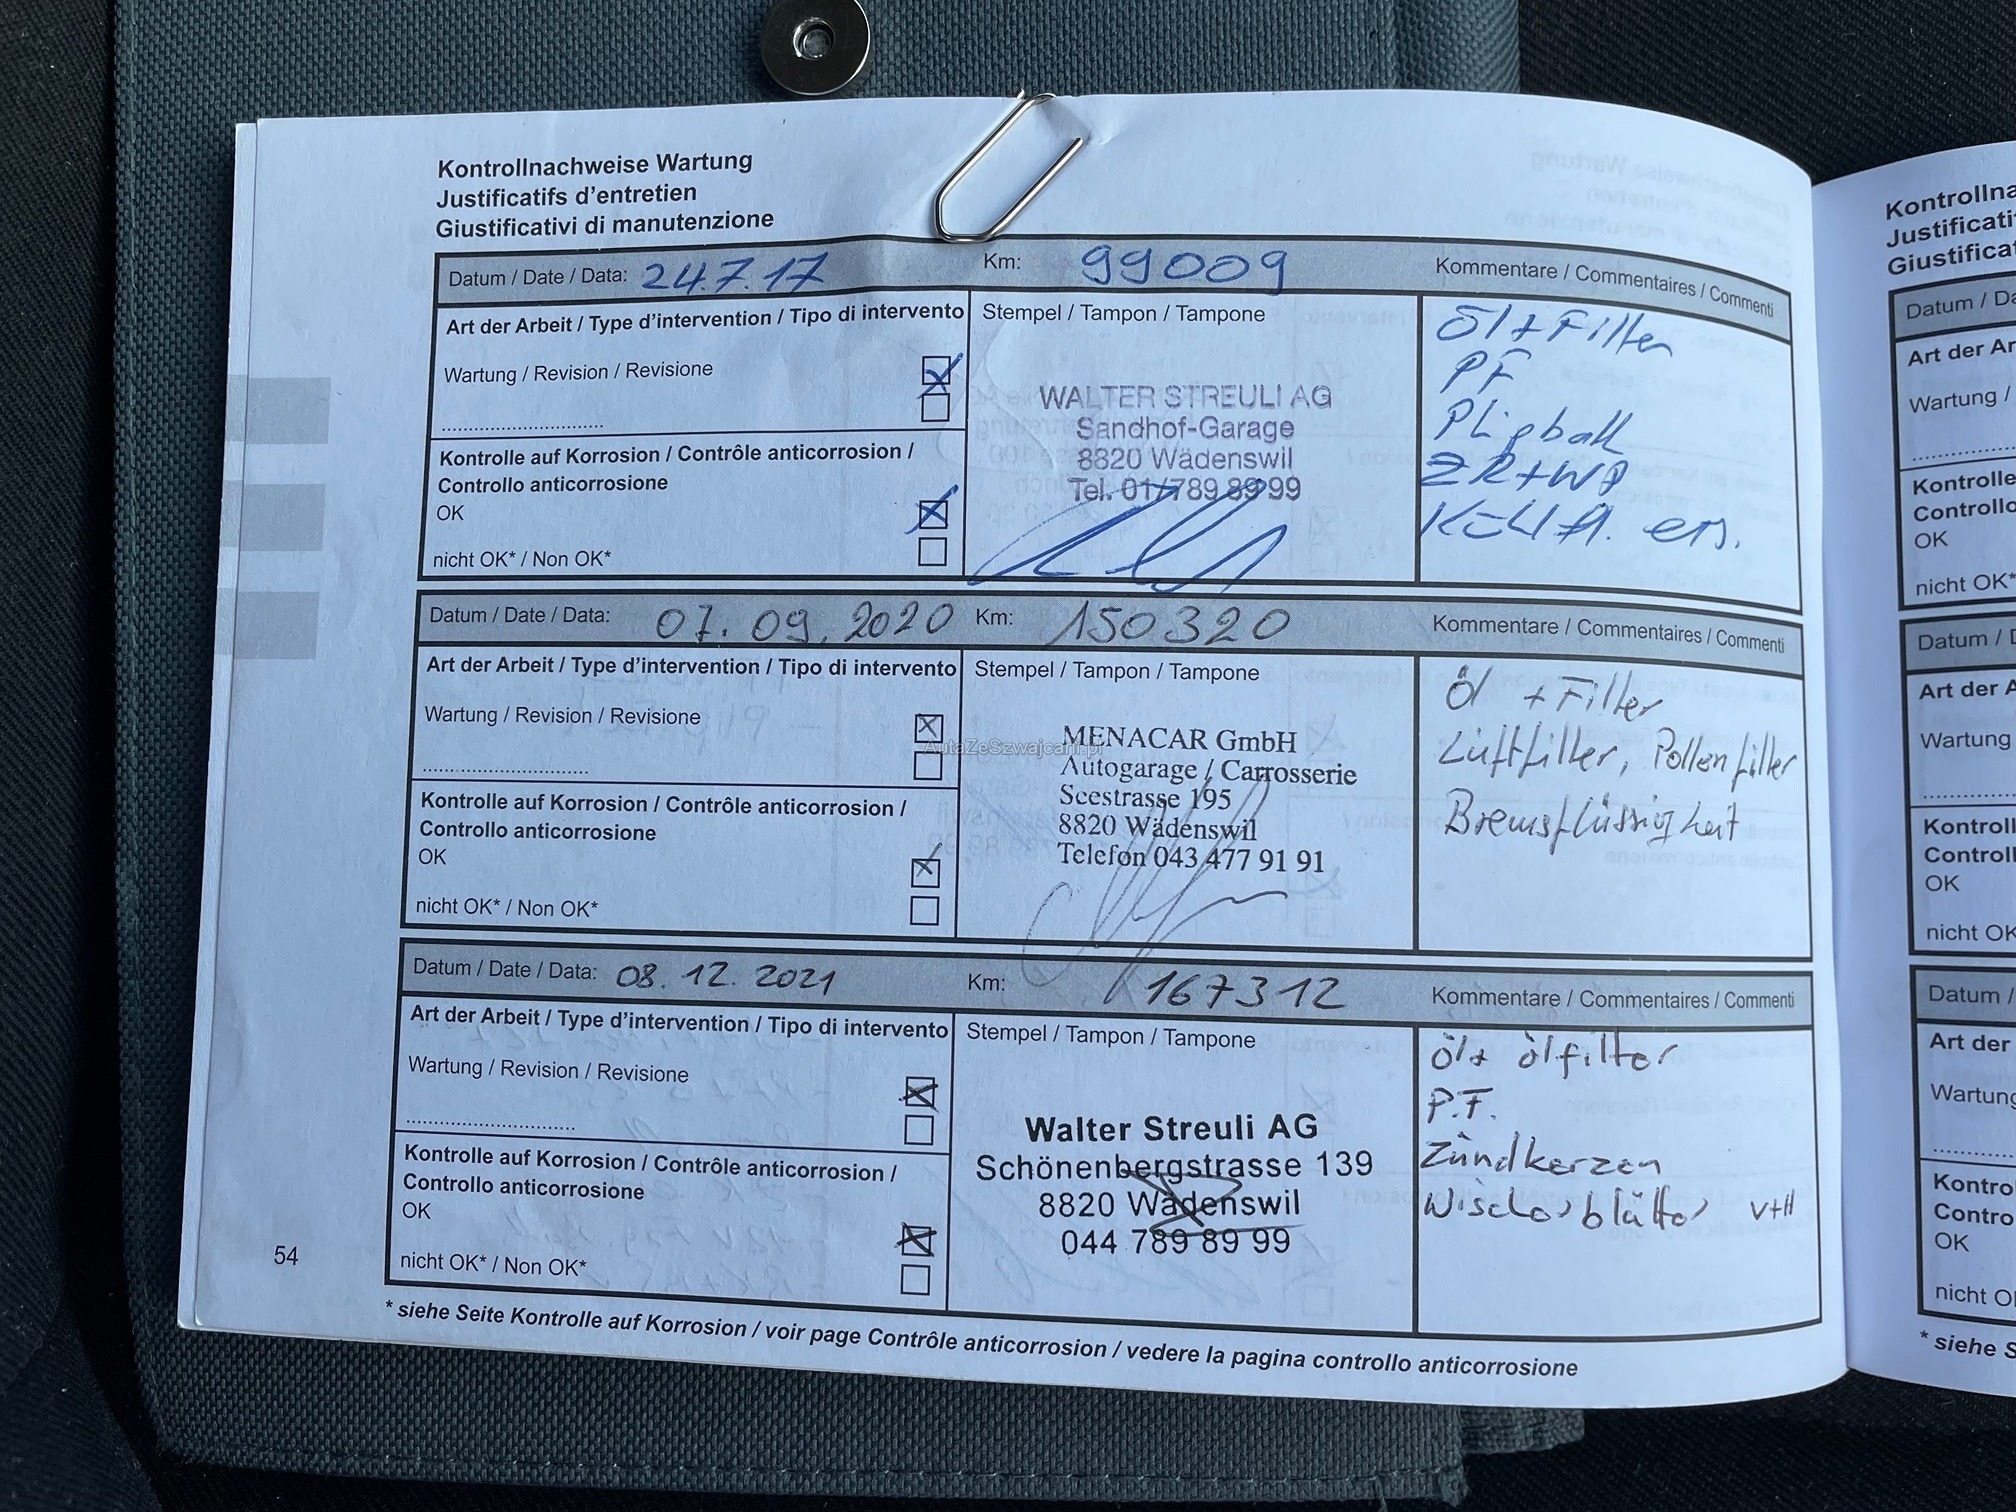 Kontrollnachweise Wartung
Justificatifs d'entretien
Giustificativi di manutenzione
Datum / Date / Data: 24.7.17 Km: 99009 Kommentare / Commentaires / Commenti
Art der Arbeit / Type d'intervention / Tipo di intervento
Wartung / Revision / Revisione
Kontrolle auf Korrosion / Contrôle anticorrosion /
Controllo anticorrosione
OK
nicht OK* / Non OK*
Stempel / Tampon / Tampone
WALTER STREULI AG
Sandhof-Garage
8820 Wädenswil
Tel. 01/789 89 99
Öl + Filter
PF
ZR+WP
Kühlfl. ers.
Datum / Date / Data: 07.09.2020 Km: 150320 Kommentare / Commentaires / Commenti
Art der Arbeit / Type d'intervention / Tipo di intervento
Wartung / Revision / Revisione
Kontrolle auf Korrosion / Contrôle anticorrosion /
Controllo anticorrosione
OK
nicht OK* / Non OK*
Stempel / Tampon / Tampone
MENACAR GmbH
Autogarage / Carrosserie
Seestrasse 195
8820 Wädenswil
Telefon 043 477 91 91
Öl + Filter
Luftfilter, Pollenfilter
Bremsflüssigkeit
AutaZeSzwajcarii.pl
Datum / Date / Data: 08.12.2021 Km: 167312 Kommentare / Commentaires / Commenti
Art der Arbeit / Type d'intervention / Tipo di intervento
Wartung / Revision / Revisione
Kontrolle auf Korrosion / Contrôle anticorrosion /
Controllo anticorrosione
OK
nicht OK* / Non OK*
Stempel / Tampon / Tampone
Walter Streuli AG
Schönenbergstrasse 139
8820 Wädenswil
044 789 89 99
öl+ ölfilter
P.F.
Zündkerzen
Wischerblätter v+H
* siehe Seite Kontrolle auf Korrosion / voir page Contrôle anticorrosion / vedere la pagina controllo anticorrosione
54
Kontrollna
Justificati
Giustifica
Datum / Da
Art der Ar
Wartung /
Kontrolle
Controllo
OK
nicht OK*
Datum / D
Art der A
Wartung
Kontroll
Controll
OK
nicht OK
Datum /
Art der
Wartung
Kontro
Contro
OK
nicht O
* siehe S